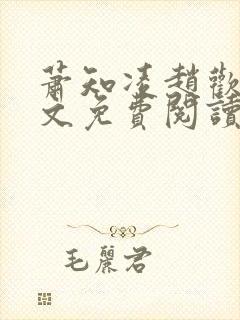 萧知凌趙歡
文免費閱讀
毛麗君